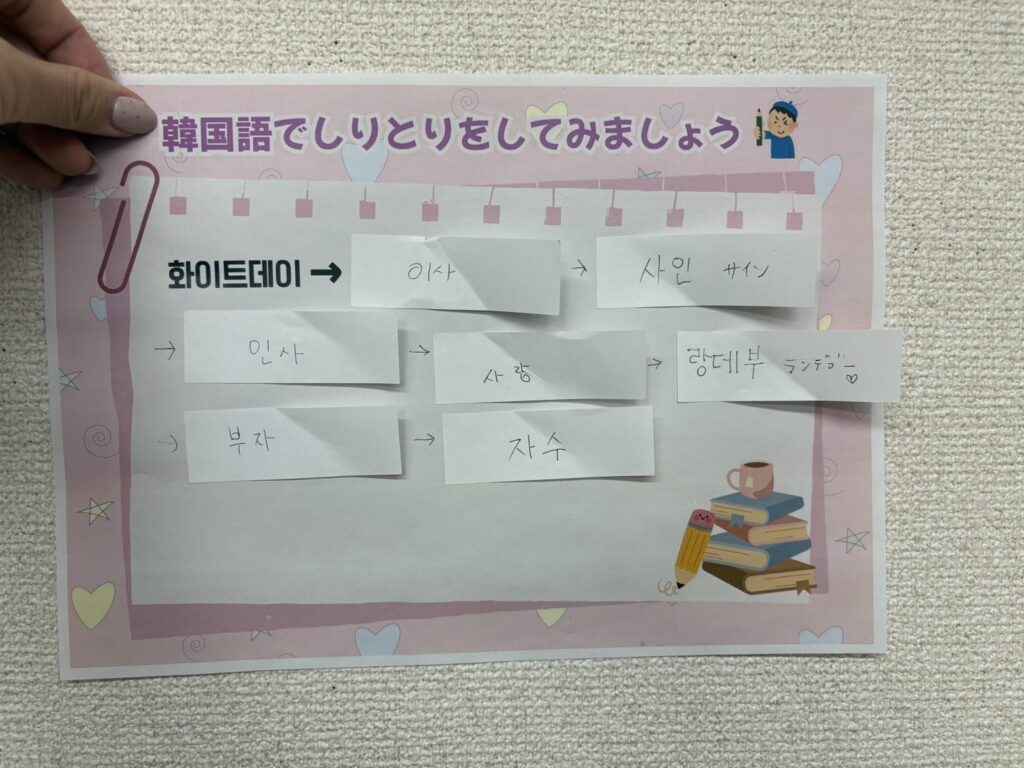 韓国語でしりとりをしてみましょう
화이트데이 → 이사 → 사인 サイン
→ 인사 → 사랑 → 랑데부 ランデブー♡
→ 부자 → 자수